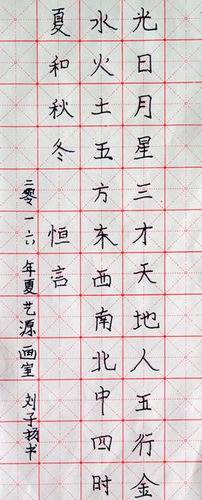 光日月星三才天地人五行金
水火土五方东西南北中四时
夏和秋冬 恒言
二零一六年夏艺源画室 刘子核书